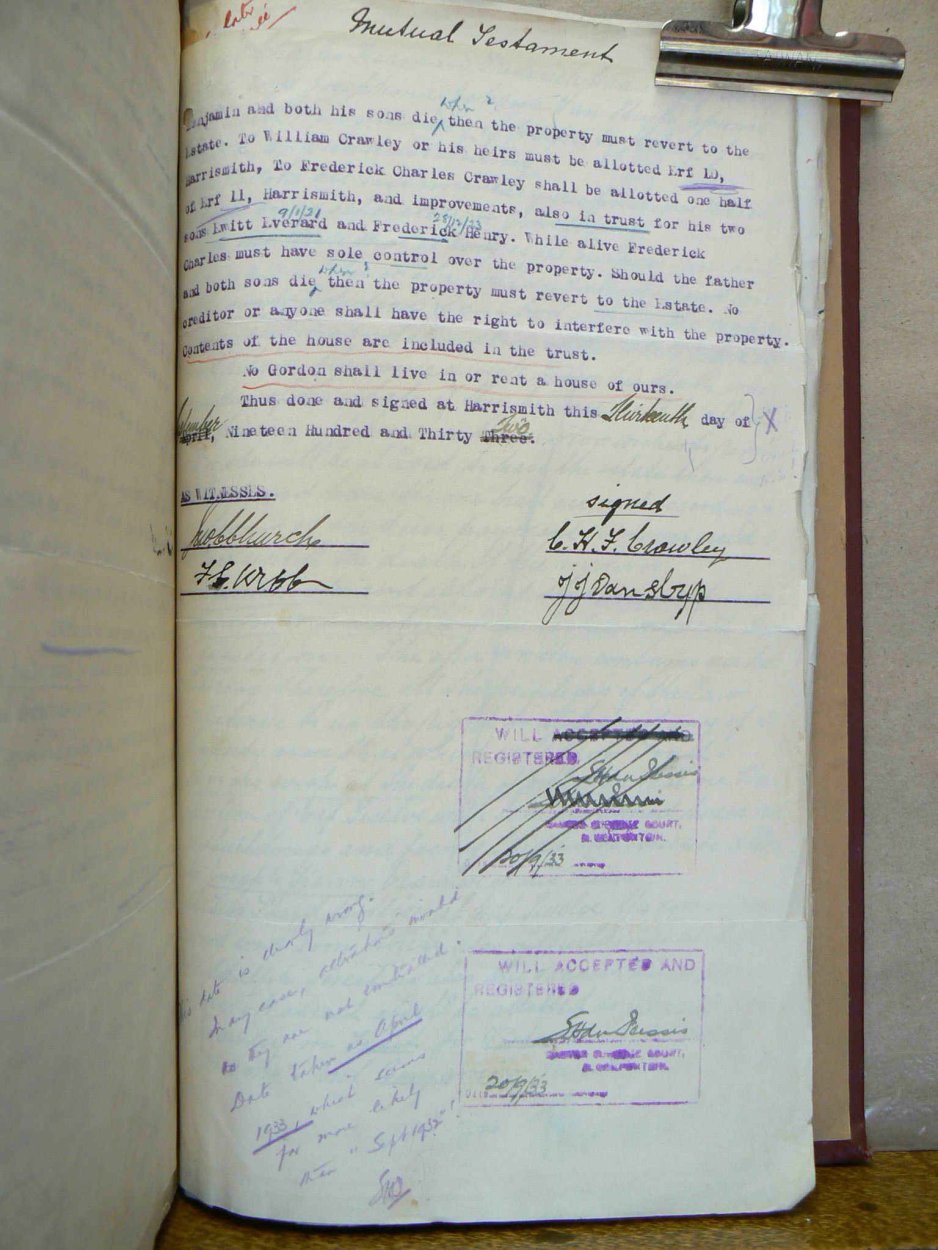 date
Mutual Testament
when ?
Benjamin and both his sons die then the property must revert to the
Estate. To William Crawley or his heirs must be allotted Erf 10,
Harrismith, To Frederick Charles Crawley shall be allotted one half
of Erf 11, Harrismith, and improvements, also in trust for his two
9/1/21 28/12/23
sons Ewitt Everard and Frederick Henry. While alive Frederick
Charles must have sole control over the property. Should the father
when ?
and both sons die then the property must revert to the Estate. No
creditor or anyone shall have the right to interfere with the property.
Contents of the house are included in the trust.
No Gordon shall live in or rent a house of ours.
Thus done and signed at Harrismith this Thirteenth day of X
September Two
April, Nineteen Hundred and Thirty Three.
AS WITNESSES.
signed
C. H. F. Crawley
F. C. Webb
WILL ACCEPTED AND
REGISTERED
MASTER SUPREME COURT,
BLOEMFONTEIN.
20/9/33
This date is clearly wrong.
In any case, alterations invalid
as they are not initialled.
Date taken as April
1933, which seems
far more likely
than "Sept 1932"!
WILL ACCEPTED AND
REGISTERED
MASTER SUPREME COURT,
BLOEMFONTEIN.
20/9/33